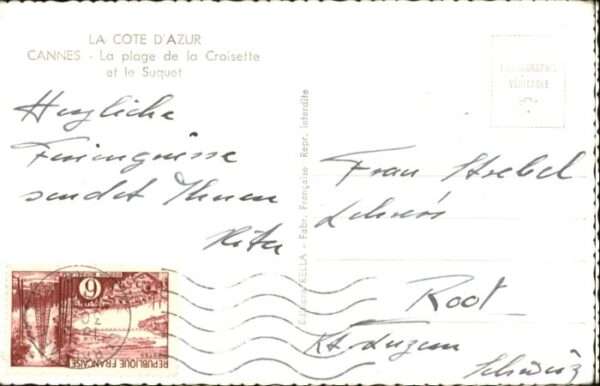 LA COTE D'AZUR
CANNES - La plage de la Croisette
et le Suquet
Herzliche
Feriengrüsse
sendet Ihnen
Rita
Fabr. Française - Repr. Interdite
PHOTOGRAPHIE
VÉRITABLE
Frau Strebel
Root
Kt. Luzern
Schweiz
6
REPUBLIQUE FRANÇAISE
POSTES